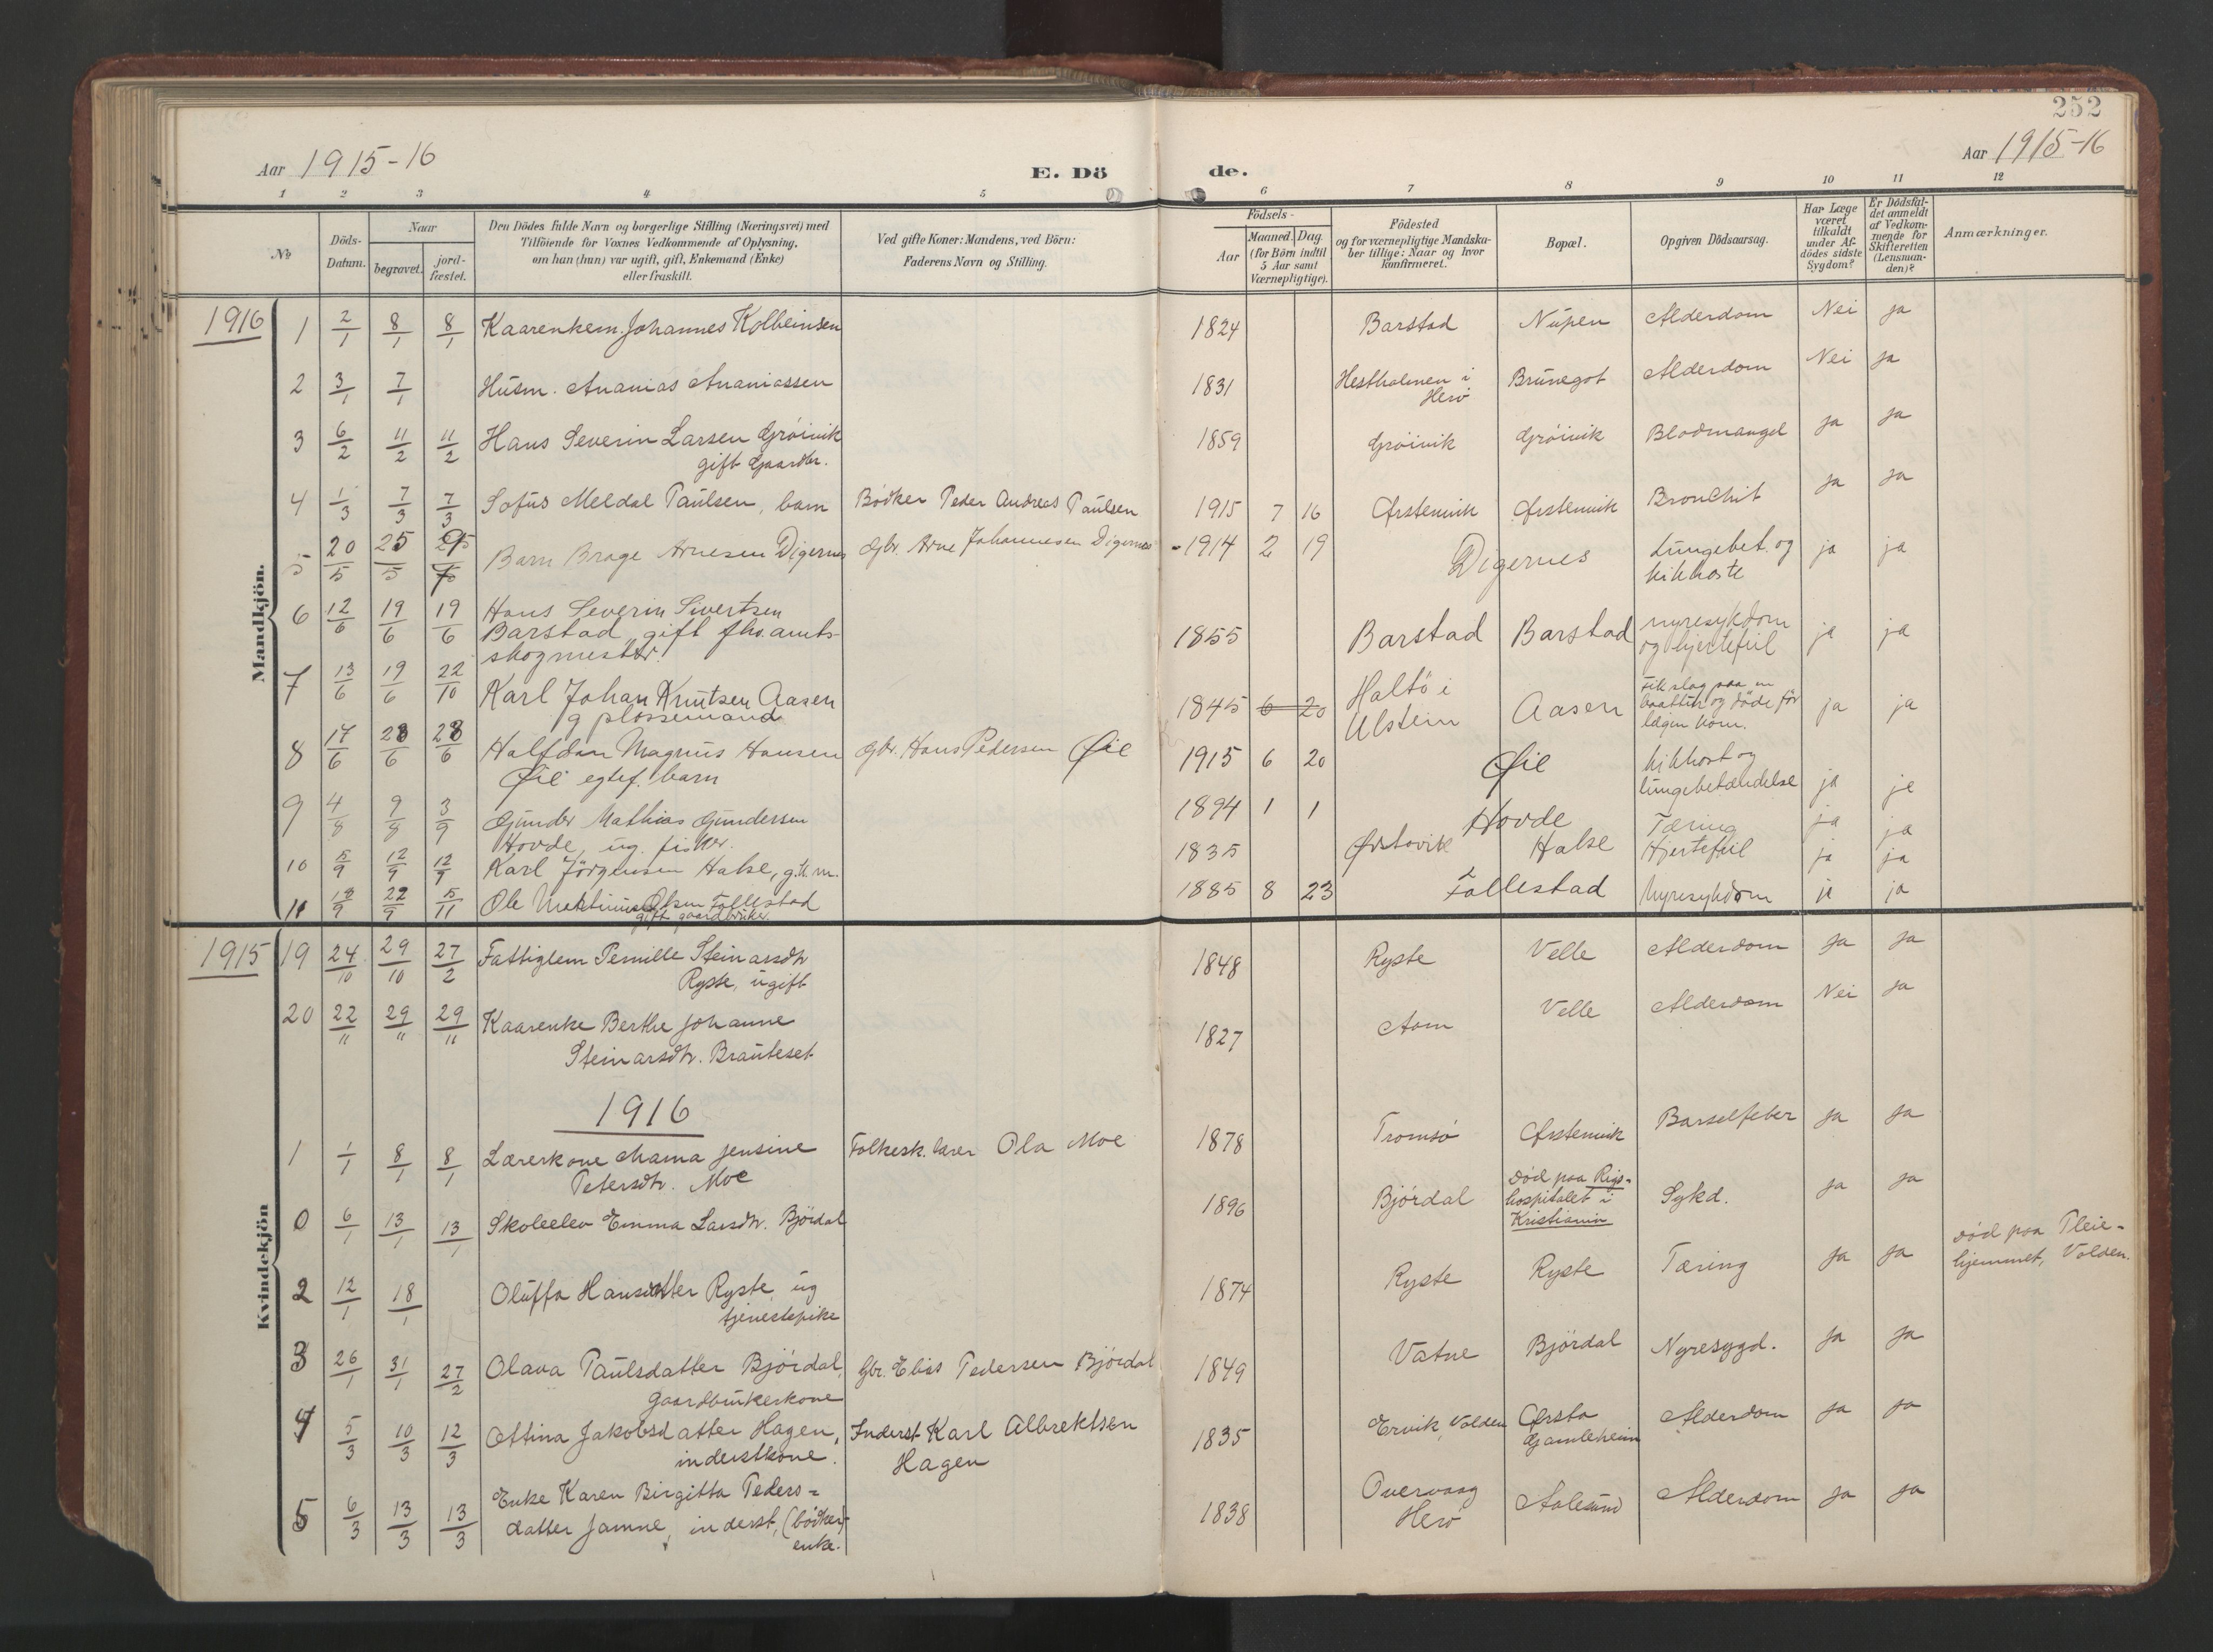 252
Aar 1915-16
E. Dö
de.
Aar 1915-16
1 2 3 4 5 6 7 8 9 10 11 12
No
Döds-Datum.
Naar
begravet.
jord-fæstet.
Den Dödes fulde Navn og borgerlige Stilling (Næringsvei) med
Tilföiende for Voxnes Vedkommende af Oplysning,
om han (hun) var ugift, gift, Enkemand (Enke)
eller fraskilt.
Ved gifte Koner: Mandens, ved Börn:
Faderens Navn og Stilling.
Födsels-
Aar
Maaned. Dag.
(for Börn indtil
5 Aar samt
Værnepligtige).
Födested
og for værnepligtige Mandska-
ber tillige: Naar og hvor
konfirmeret.
Bopæl.
Opgiven Dödsaarsag.
Har Læge
været
tilkaldt
under Af-
dödes sidste
Sygdom?
Er Dödsfal-
det anmeldt
af Vedkom-
mende for
Skifteretten
(Lensman-
den)?
Anmærkninger.
Mandkjön.
1916 1 2/1 8/1 8/1 Kaarenkem. Johannes Kolbeinsen 1824 Barstad Nupen Alderdom Nei ja
2 3/1 7/1 Husm. Ananias Ananiassen 1831 Hestholmen i Brunegot Alderdom Nei ja
Herö
3 6/2 11/2 11/2 Hans Severin Larsen Gröivik 1859 Gröivik Gröivik Blodmangel ja ja
gift Gaardbr.
4 1/3 7/3 7/3 Sofus Meldal Paulsen, barn Bödker Peder Andreas Paulsen 1915 7 16 Ørstenvik Ørstenvik Bronchit ja ja
5 20/5 25/5 Barn Brage Arnesen Digernes Gbr. Arne Johannesen Digernes 1914 2 19 Digernes Lungebet. og ja ja
kikhoste
6 12/6 19/6 19/6 Hans Severin Sivertsen
Barstad, gift fhv. amts- 1855 Barstad Barstad nyresykdom ja ja
skogmester. og hjertefeil
7 13/6 19/6 22/10 Karl Johan Knutsen Aasen 1845 6 20 Haltö i Aasen Fik slag paa en ja ja
g plassemand Ulstein og döde för
lægen kom.
8 17/6 28/6 28/6 Halfdan Magnus Hansen Gbr. Hans Pedersen Øie 1915 6 20 Øie kikhost og ja ja
Øie egtef. barn lungebetændelse
9 4/8 9/8 3/9 Gunder Mathias Gundersen 1894 1 1 Hovde Tæring ja ja
Hovde, ug. fisker.
10 5/9 12/9 12/9 Karl Jörgensen Halse, g.k.m. 1835 Ørstavik Halse Hjertefeil ja ja
11 18/9 22/9 5/11 Ole Martinus Olsen Follestad 1885 8 23 Follestad Nyresykdom ja ja
gift gaardbruker.
Kvindekjön
1915 19 24/10 29/10 27/2 Fattiglem Pernille Steinarsdtr 1848 Ryste Velle Alderdom ja ja
Ryste, ugift
20 22/11 29/11 29/11 Kaarenke Berthe Johanne 1827 Aam Velle Alderdom Nei ja
Steinarsdtr. Brauteset
1916
1 1/1 8/1 8/1 Lærerkone Mama Jensine Folkesk. lærer Ola Moe 1878 Tromsö Ørstenvik Barselfeber ja ja
Petersdtr. Moe
0 6/1 13/1 13/1 Skoleelev Emma Larsdtr. Björdal 1896 Björdal död paa Rigs- Sykd. ja ja
hospitalet i
Kristiania
2 12/1 18/1 Oluffa Hansdatter Ryste, ug 1874 Ryste Ryste Tæring ja ja död paa Pleie-
tjenestepike hjemmet, Volden.
3 26/1 31/1 27/2 Olava Paulsdatter Björdal, Gbr. Elias Pedersen Björdal 1849 Vatne Björdal Nyresygd. ja ja
gaardbrukerkone
4 5/3 10/3 12/3 Ottina Jakobsdatter Hagen, Inderst Karl Albrektsen 1835 Ervik, Volden Ørsta Alderdom ja ja
inderstkone. Hagen Gamleheim
5 6/3 13/3 13/3 Enke Karen Birgitta Peders- 1838 Overvaag Aalesund Alderdom ja ja
datter Jamne, inderst, (bödker)- Herö
enke.